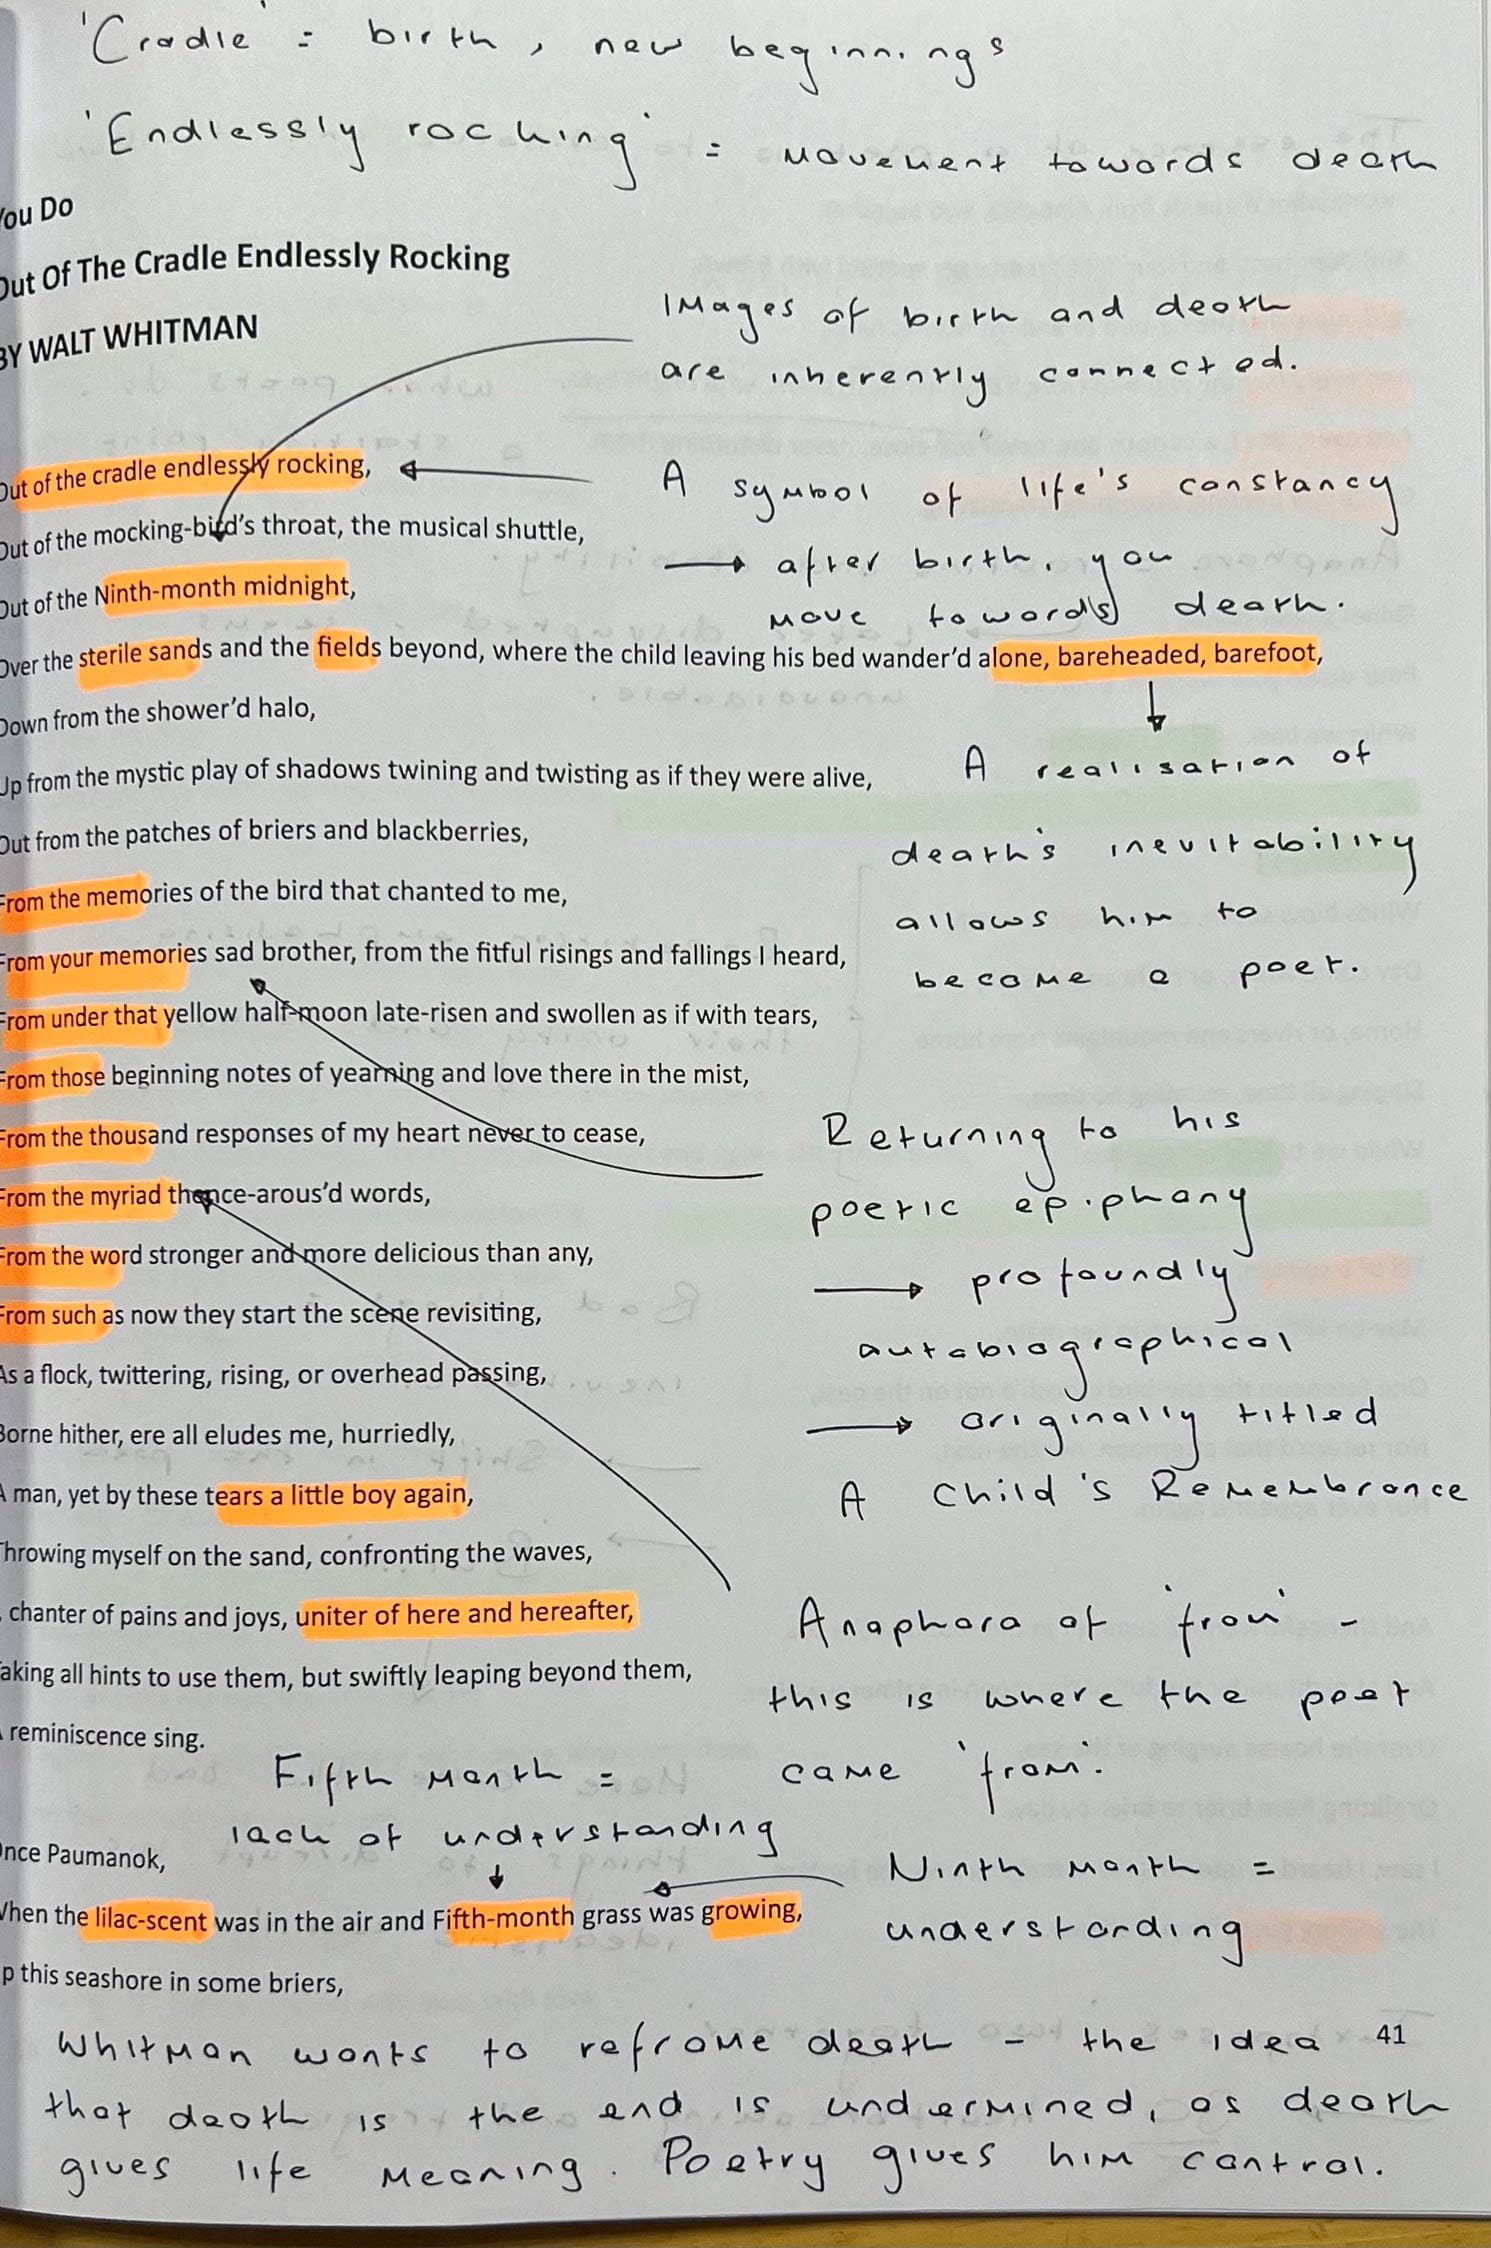 'Cradle' = birth, new beginnings
'Endlessly rocking' = movement towards death
You Do
Out Of The Cradle Endlessly Rocking
BY WALT WHITMAN
Images of birth and death
are inherently connected.
Out of the cradle endlessly rocking,
A symbol of life's constancy
Out of the mocking-bird's throat, the musical shuttle,
→ after birth, you
Out of the Ninth-month midnight,
move toward(s) death.
Over the sterile sands and the fields beyond, where the child leaving his bed wander'd alone, bareheaded, barefoot,
Down from the shower'd halo,
Up from the mystic play of shadows twining and twisting as if they were alive,
A realisation of
death's inevitability
allows him to
become a poet.
Out from the patches of briers and blackberries,
From the memories of the bird that chanted to me,
From your memories sad brother, from the fitful risings and fallings I heard,
From under that yellow half-moon late-risen and swollen as if with tears,
From those beginning notes of yearning and love there in the mist,
From the thousand responses of my heart never to cease,
From the myriad thence-arous'd words,
From the word stronger and more delicious than any,
From such as now they start the scene revisiting,
Returning to his
poetic epiphany
→ profoundly
autobiographical
→ originally titled
A Child's Remembrance
As a flock, twittering, rising, or overhead passing,
Borne hither, ere all eludes me, hurriedly,
A man, yet by these tears a little boy again,
Throwing myself on the sand, confronting the waves,
chanter of pains and joys, uniter of here and hereafter,
Taking all hints to use them, but swiftly leaping beyond them,
reminiscence sing.
Anaphora of 'from' -
this is where the poet
came 'from'.
Fifth month =
lack of understanding
Once Paumanok,
Ninth month =
understanding
When the lilac-scent was in the air and Fifth-month grass was growing,
p this seashore in some briers,
41
Whitman wants to reframe death - the idea
that death is the end is undermined, as death
gives life meaning. Poetry gives him control.